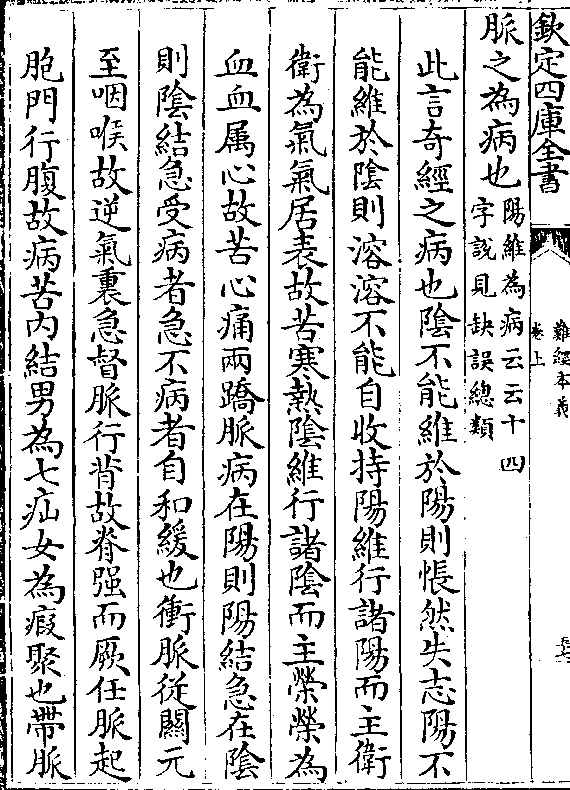 欽定四庫全書
難經本義
卷上
脈之為病也陽維為病云云十四
字說見缺誤總類
此言奇經之病也陰不能維於陽則悵然失志陽不
能維於陰則溶溶不能自收持陽維行諸陽而主衛
衛為氣氣居表故苦寒熱陰維行諸陰而主榮榮為
血血属心故苦心痛兩蹻脈病在陽則陽結急在陰
則陰結急受病者急不病者自和緩也衝脈從關元
至咽喉故逆氣裏急督脈行背故脊强而厥任脈起
胞門行腹故病苦内結男為七疝女為瘕聚也帶脈